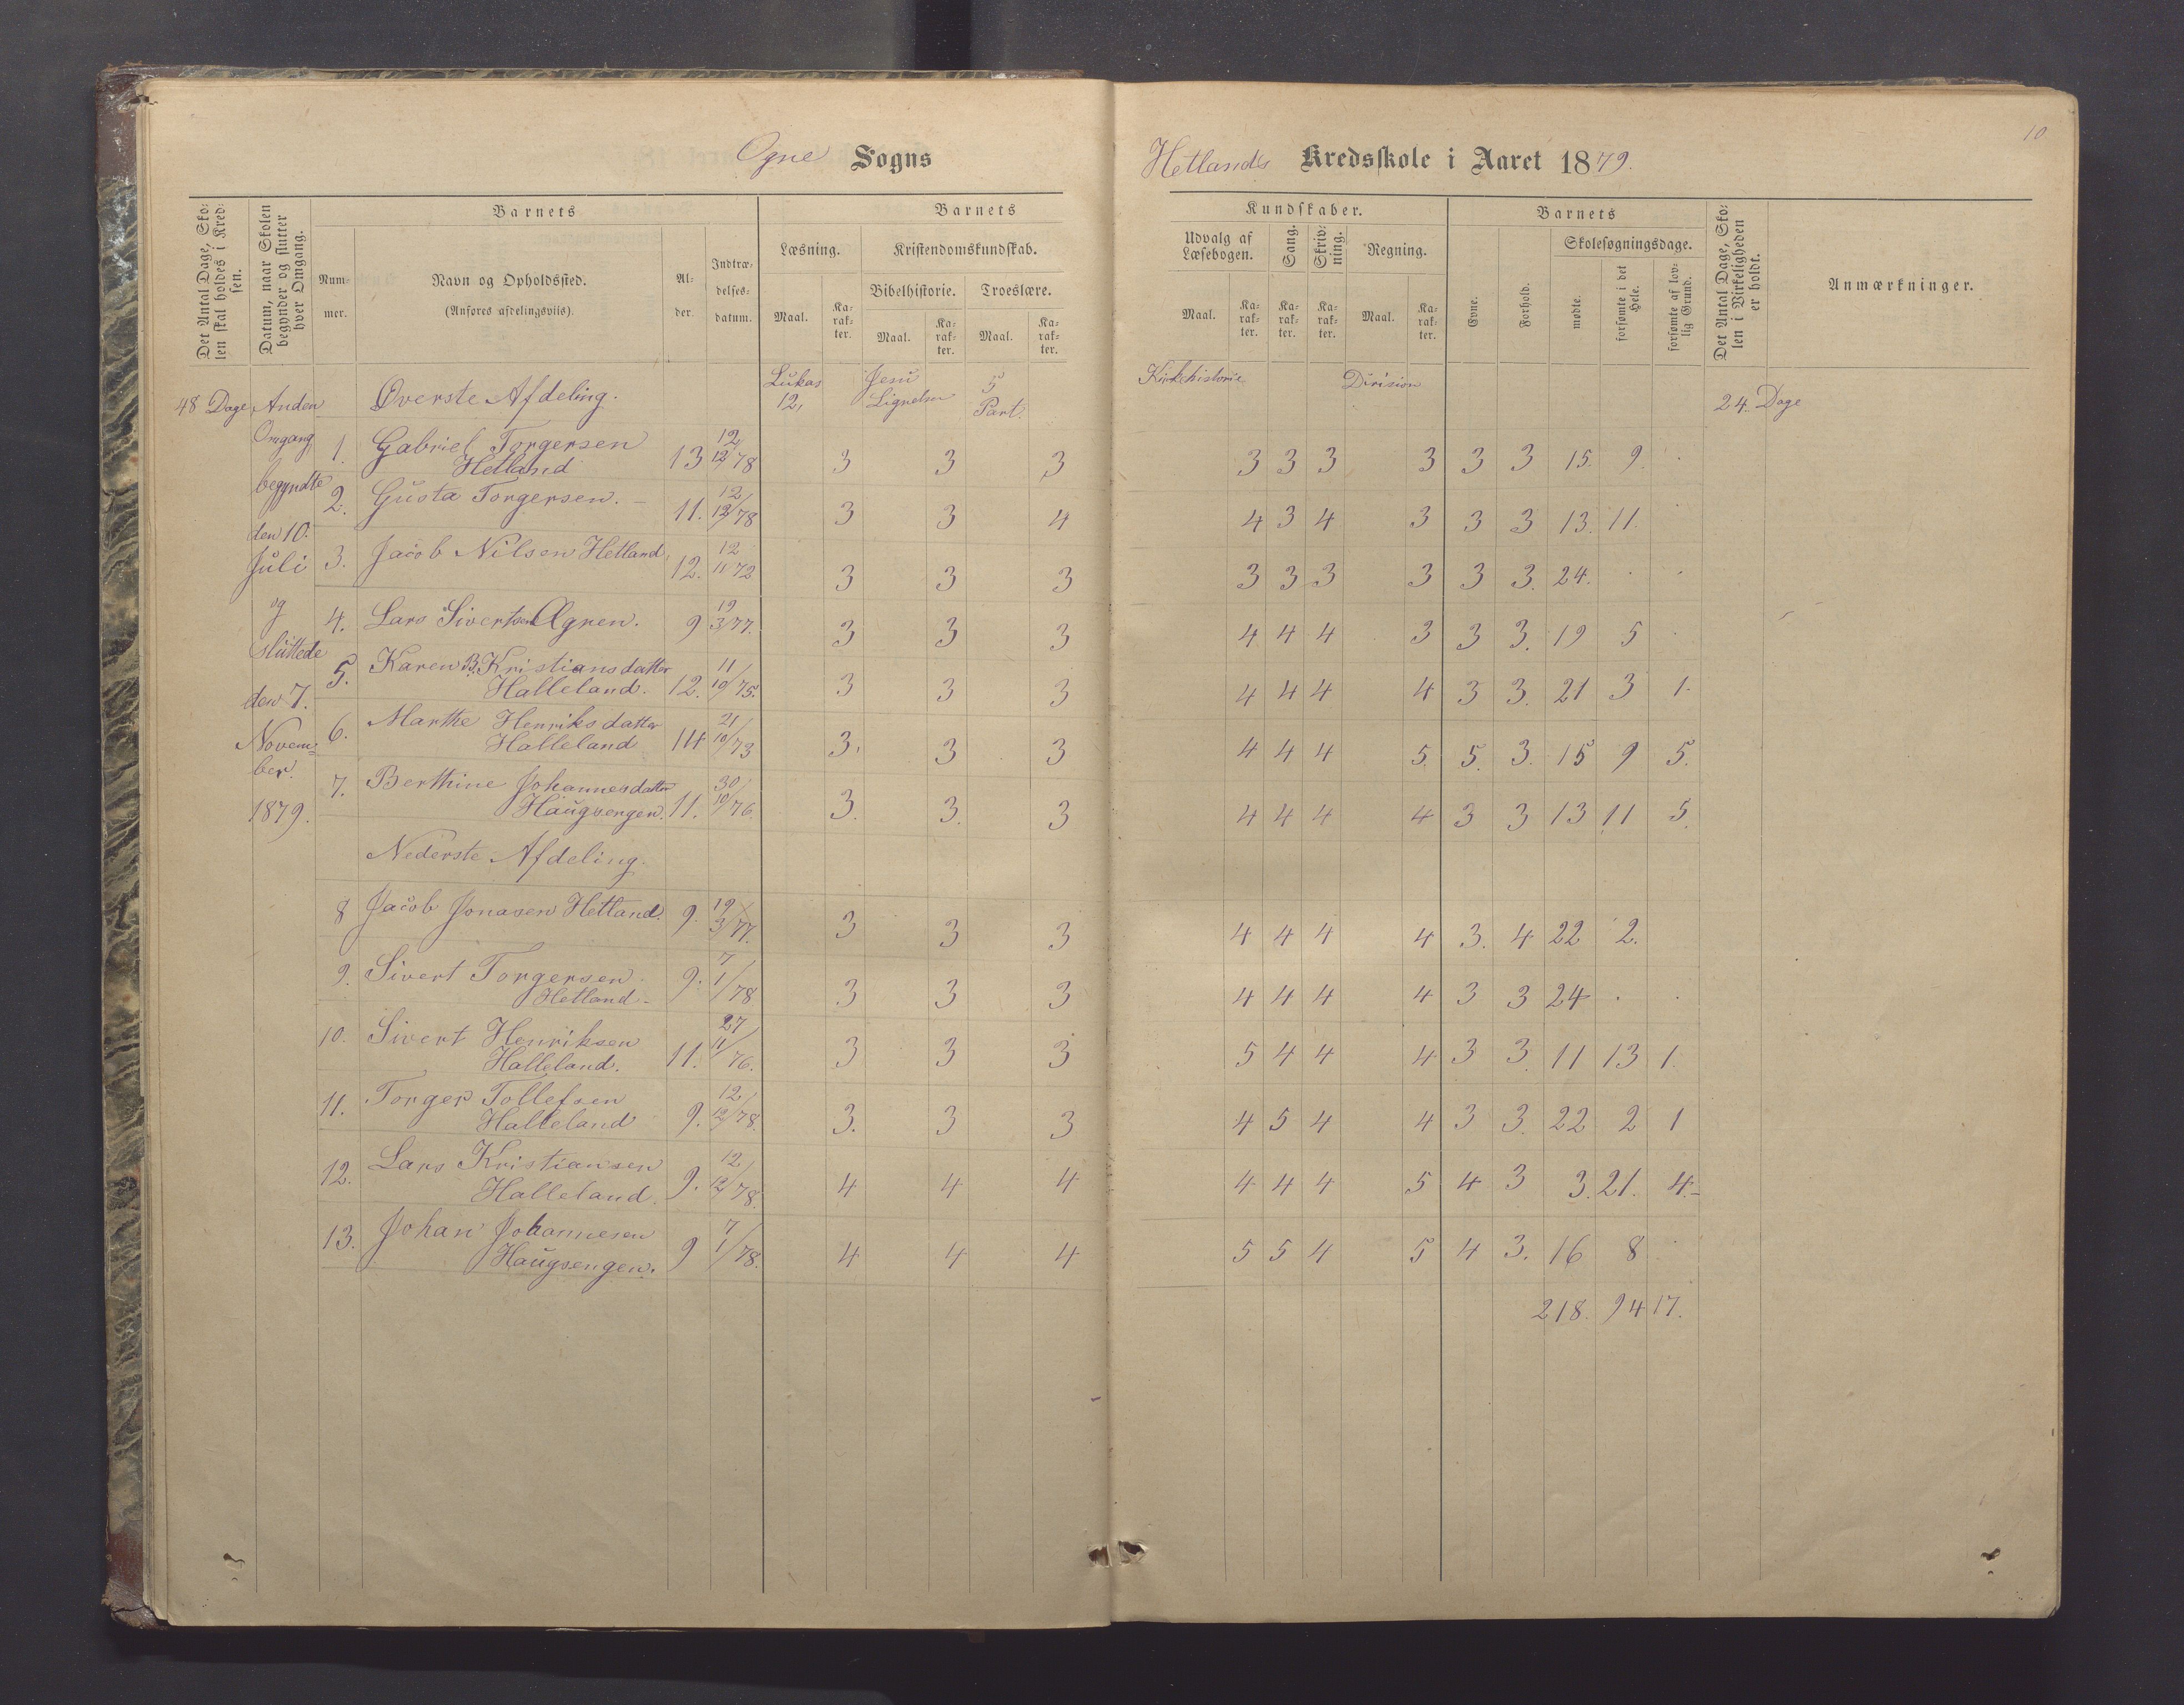 10
Ogne Sogns
Hetlands Kredsskole i Aaret 1879.
Det Antal Dage, Skolen skal holdes i Kredsen.
Datum, naar Skolen begynder og slutter hver Omgang.
Barnets
Nummer.
Navn og Opholdssted.
(Anføres afdelingsviis).
Alder.
Indtrædelsesdatum.
Barnets
Læsning.
Maal.
Karakter.
Kristendomskundskab.
Bibelhistorie.
Maal.
Karakter.
Troeslære.
Maal.
Karakter.
Kundskaber.
Udvalg af Læsebogen.
Maal.
Karakter.
Sang.
Karakter.
Skrivning.
Karakter.
Regning.
Maal.
Karakter.
Barnets
Evne.
Forhold.
Skolesøgningsdage.
mødte.
forsømte i det Hele.
forsømte af lovlig Grund.
Det Antal Dage, Skolen i Virkeligheden er holdt.
Anmærkninger.
48 Dage
Anden
Omgang
begyndte
den 10.
Juli
og
sluttede
den 7.
Novem-
ber.
1879.
Øverste Afdeling. Lukas 12, Jesu Lignelser 5 Part. Kirkehistorie Division 24. Dage
1. Gabriel Torgersen Hetland 13 12/12/78 3 3 3 3 3 3 3 3 3 15. 9. .
2. Gusta Torgersen. - 11. 12/12/78 3 3 4 4 3 4 3 3 3 13. 11. .
3. Jacob Nilsen Hetland 12. 12/11 72 3 3 3 3 3 3 3 3 3. 24. . .
4. Lars Sivertsen Ægren. 9 19/3/77. 3 3 3 4 4 4 3 3 3. 19 5 .
5. Karen B. Kristiansdatter Halleland. 12. 11/10/75. 3 3 3 4 4 4 4 3 3. 21 3 1.
6. Marthe Henriksdatter Halleland 14 21/10/73 3. 3 3 4 4 4 5. 5. 3. 15 9 5.
7. Berthine Johannesdatter Haugsengen. 11. 30/10/76. 3. 3. 3 4 4 4 4 3 3 13 11 5.
Nederste Afdeling.
8 Jacob Jonasen Hetland. 9. 19/3/77. 3 3 3 4 4 4 4 3. 4 22 2.
9. Sivert Torgersen Hetland - 9. 7/1/78 3 3 3 4 4 4 4 3 3 24 . .
10. Sivert Henriksen Halleland. 11. 27/11/76. 3 3 3 5 4 4 4 3 3. 11 13 1.
11. Torger Tollefsen Halleland 9. 12/12/78. 3. 3 3 4 5 4 4 3 3. 22 2 1
12. Lars Kristiansen Halleland. 9. 12/12/78. 4 4 4 4 4 4 5 4 3 3. 21. 4.-
13. Johan Johannesen Haugsengen. 9 7/1/78. 4 4 4 5 5 4 5 4 3. 16 8 .
218. 94 17.